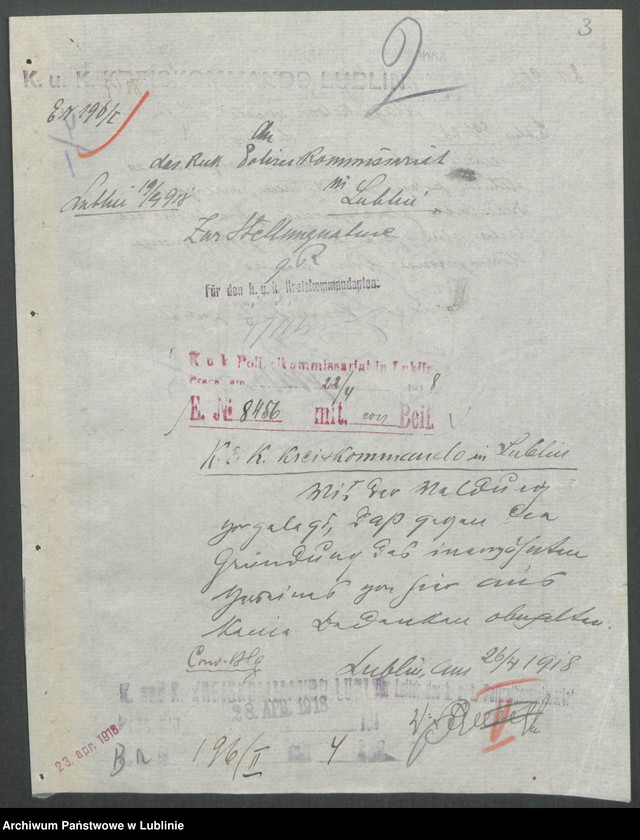 3
2
K. u. K. KREISKOMMANDO LUBLIN
Ex 196/I
An
das kuk Polizei Kommissariat
in Lublin
Lublin 19/4 918
Zur Stellungnahme
Für den k. u. k. Kreiskommandanten:
K. u. k. Polizeikommissariat in Lublin
Präs. am 22/4 191 8
E. № 8456 mit. Beil.
K. u. K. Kreiskommando in Lublin
Mit der Meldung
vorgelegt, daß gegen die
Gründung des inerwähnten
Vereines von hier aus
keine Bedenken obwalten.
Lublin, am 26/4 1918
K. und K. KREISKOMMANDO LUBLIN
28. APR. 1918
23. apr. 1918
196/II 4
Archiwum Państwowe w Lublinie